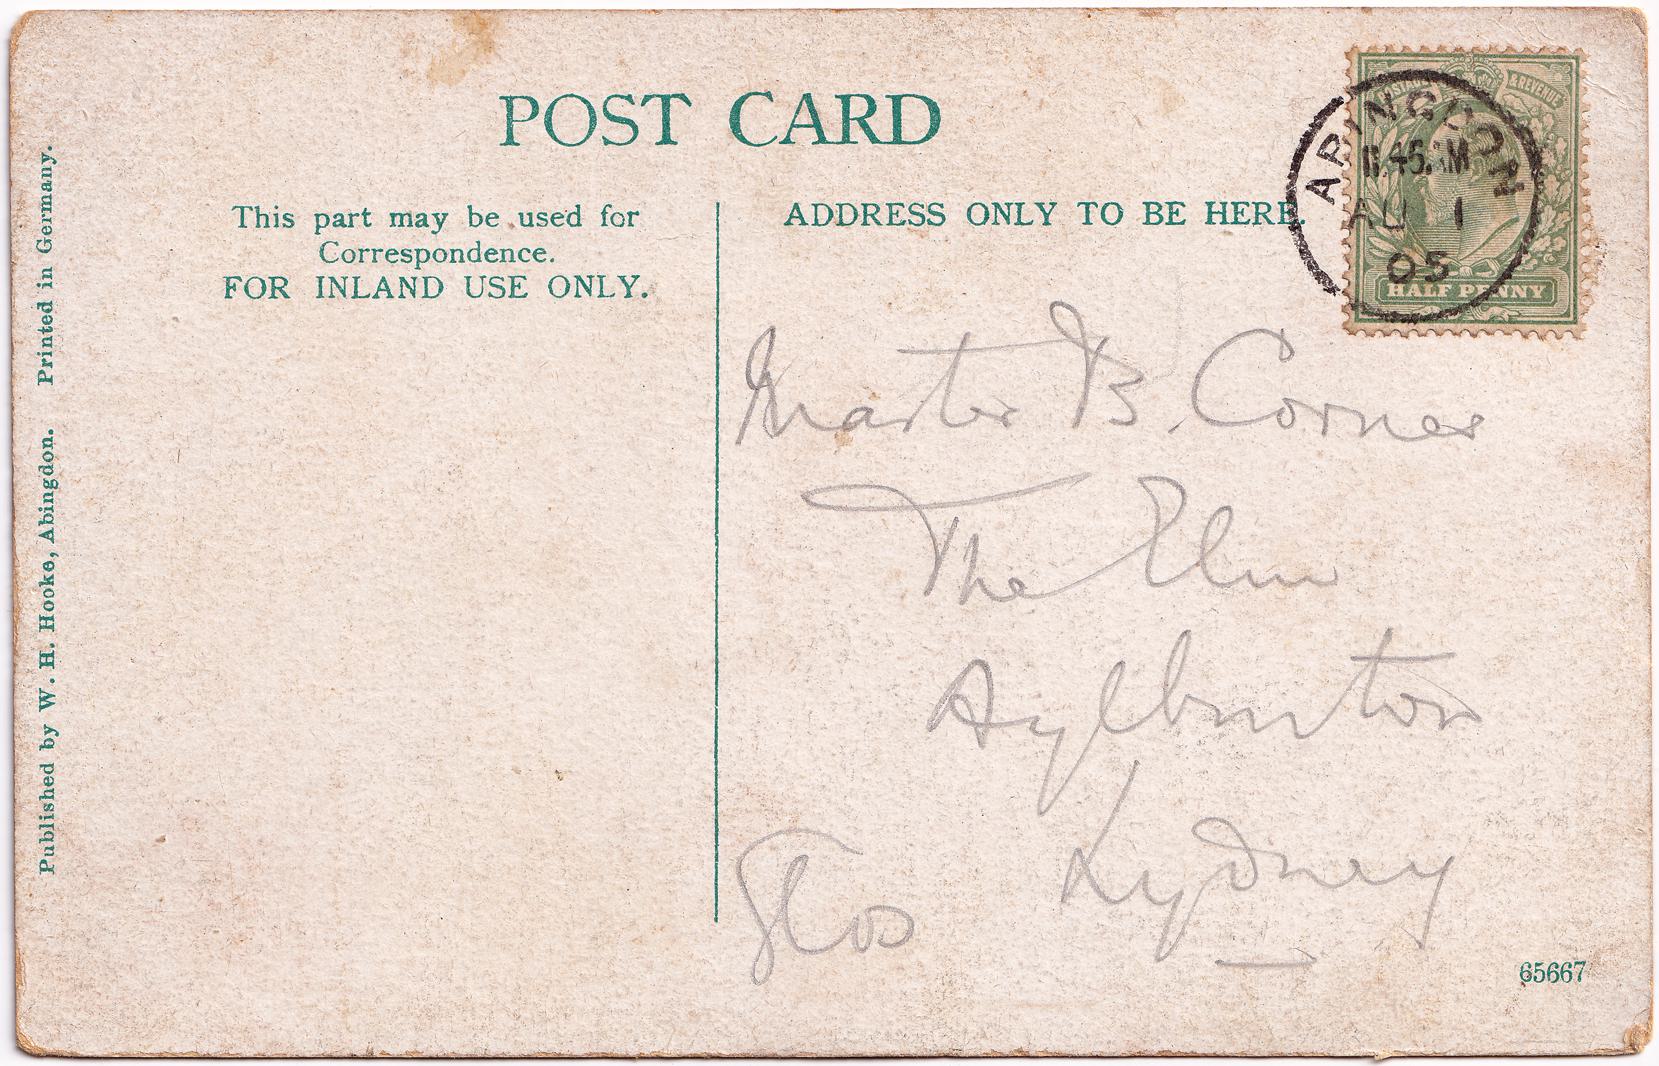 POST CARD
This part may be used for
Correspondence.
FOR INLAND USE ONLY.
ADDRESS ONLY TO BE HERE.
& REVENUE
ABINGDON
11.45 AM
AU 1
05
HALF PENNY
Master B. Corner
The Elm
Aylburton
Lydney
Glos
65667
Published by W. H. Hooke, Abingdon. Printed in Germany.